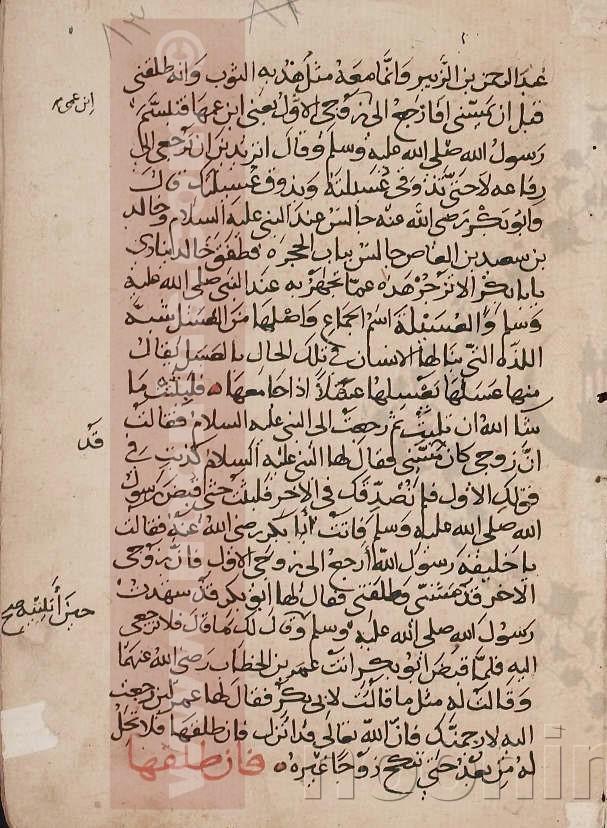 عبد الرحمن بن الزبير وانما معه مثل هدبه الثوب وانه طلقني
قبل ان يمسني افارجع الى زوجي الاول يعني ابن عمها فتبسم
رسول الله صلى الله عليه وسلم وقال اتريدين ان ترجعي الى
رفاعه لا حتى تذوقي عسيلته ويذوق عسيلتك قالت
وابو بكر رضي الله عنه جالس عند النبي عليه السلام وخالد
بن سعيد بن العاص جالس بباب الحجره فطفق خالد ينادي
يا با بكر الا تزجر هذه عما تجهر به عند النبي صلى الله عليه
وسلم والعسيلة اسم الجماع واصلها من العسل شبه
اللذه التي ينالها الانسان في تلك الحال بالعسل يقال
منها عسلها يعسلها عسلا اذا جامعها فلبثت ما
شا الله ان تلبث ثم رجعت الى النبي عليه السلام فقالت
ان زوجي كان مسني فقال لها النبي عليه السلام كذبت في
قولك الاول فلن نصدقك في الاخر فلبثت حتى قبض رسول
الله صلى الله عليه وسلم فاتت ابا بكر رضي الله عنه فقالت
يا خليفه رسول الله ارجع الى زوجي الاول فان زوجي
الاخر قد مسني وطلقني فقال لها ابو بكر قد شهدت
رسول الله صلى الله عليه وسلم وقال لك ما قال فلا ترجعي
اليه فلما قبض ابو بكر اتت عمر بن الخطاب رضي الله عنهما
وقالت له مثل ما قالت لابي بكر فقال لها عمر لين رجعت
اليه لارجمنك فان الله تعالى قد انزل فان طلقها فلا تحل
له من بعد حتى تنكح زوجا غيره فان طلقها
ابن عمي
قد
حين اتيتيه صح
noorin